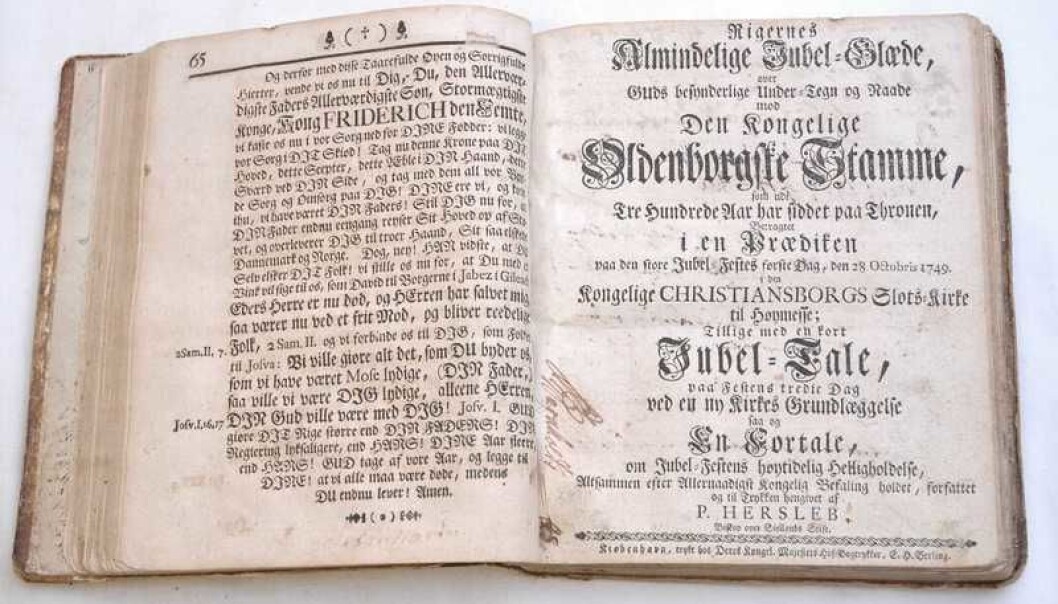 65
( † )
Og derfor med disse Taarefulde Øyen og Sorrigfulde
Hierter, vende vi os nu til Dig, Du, den Allervær-
digste Faders Allerværdigste Søn, Stormægtigste
Konge, Kong FRIDERICH den Femte,
vi kaste os nu i vor Sorg ned for DINE Fødder: vi legge
vor Sorg i DIT Skiød! Tag nu denne Krone paa DIT
Hoved, dette Scepter, dette Æble i DIN Haand, dette
Sværd ved DIN Side, og tag med dem all vor
de Sorg og Omsorg paa DIG! DINE ere vi, og
thi, vi have været DIN Faders! Stil DIG nu for, at
DIN Fader endnu eengang reyser Sit Hoved op af
vet, og overleverer DIG til troer Haand, Sit saa elskte
Dannemark og Norge. Dog, ney! HAN vidste, at DU
Selv elsker DIT Folk! vi stille os nu for, at Du med et
Vink vil sige til os, som David til Borgerne i Jabez i Gilead
Eders Herre er nu død, og HErren har salvet mig
saa værer nu ved et frit Mod, og bliver reedelige
2 Sam. II, 7. Folk, 2 Sam. II. og vi forbinde os til DIG, som Folket
til Josva: Vi ville giøre alt det, som DU byder os,
som vi have været Mose lydige, (DIN Fader,)
saa ville vi være DIG lydige, alleene HErren,
Josv. I, 16, 17 DIN Gud ville være med DIG! Josv. I. GUD
giøre DIT Rige større end DIN FADERS! DIN
Regiering lyksaligere, end HANS! DINE Aar fleere,
end HANS! GUD tage af vore Aar, og legge til
DINE! at vi alle maa være døde, medens
DU endnu lever! Amen.
Rigernes
Almindelige Jubel-Glæde,
over
Guds besynderlige Under-Tegn og Naade
mod
Den Kongelige
Oldenborgske Stamme,
som udi
Tre Hundrede Aar har siddet paa Thronen,
Betragtet
i en Prædiken
paa den store Jubel-Festes første Dag, den 28 Octobris 1749.
i den
Kongelige CHRISTIANSBORGS Slots-Kirke
til Høymesse;
Tillige med en kort
Jubel-Tale,
paa Festens tredie Dag
ved en ny Kirkes Grundlæggelse
saa og
En Fortale,
om Jubel-Festens høytidelig Helligholdelse,
Altsammen efter Allernaadigst Kongelig Befaling holdet, forfattet
og til Trykken hengivet af
P. HERSLEB,
Biskop over Siellands Stift.
Kiøbenhavn, trykt hos Deres Kongel. Majestets Hof-Bogtrykker, E. H. Berling.